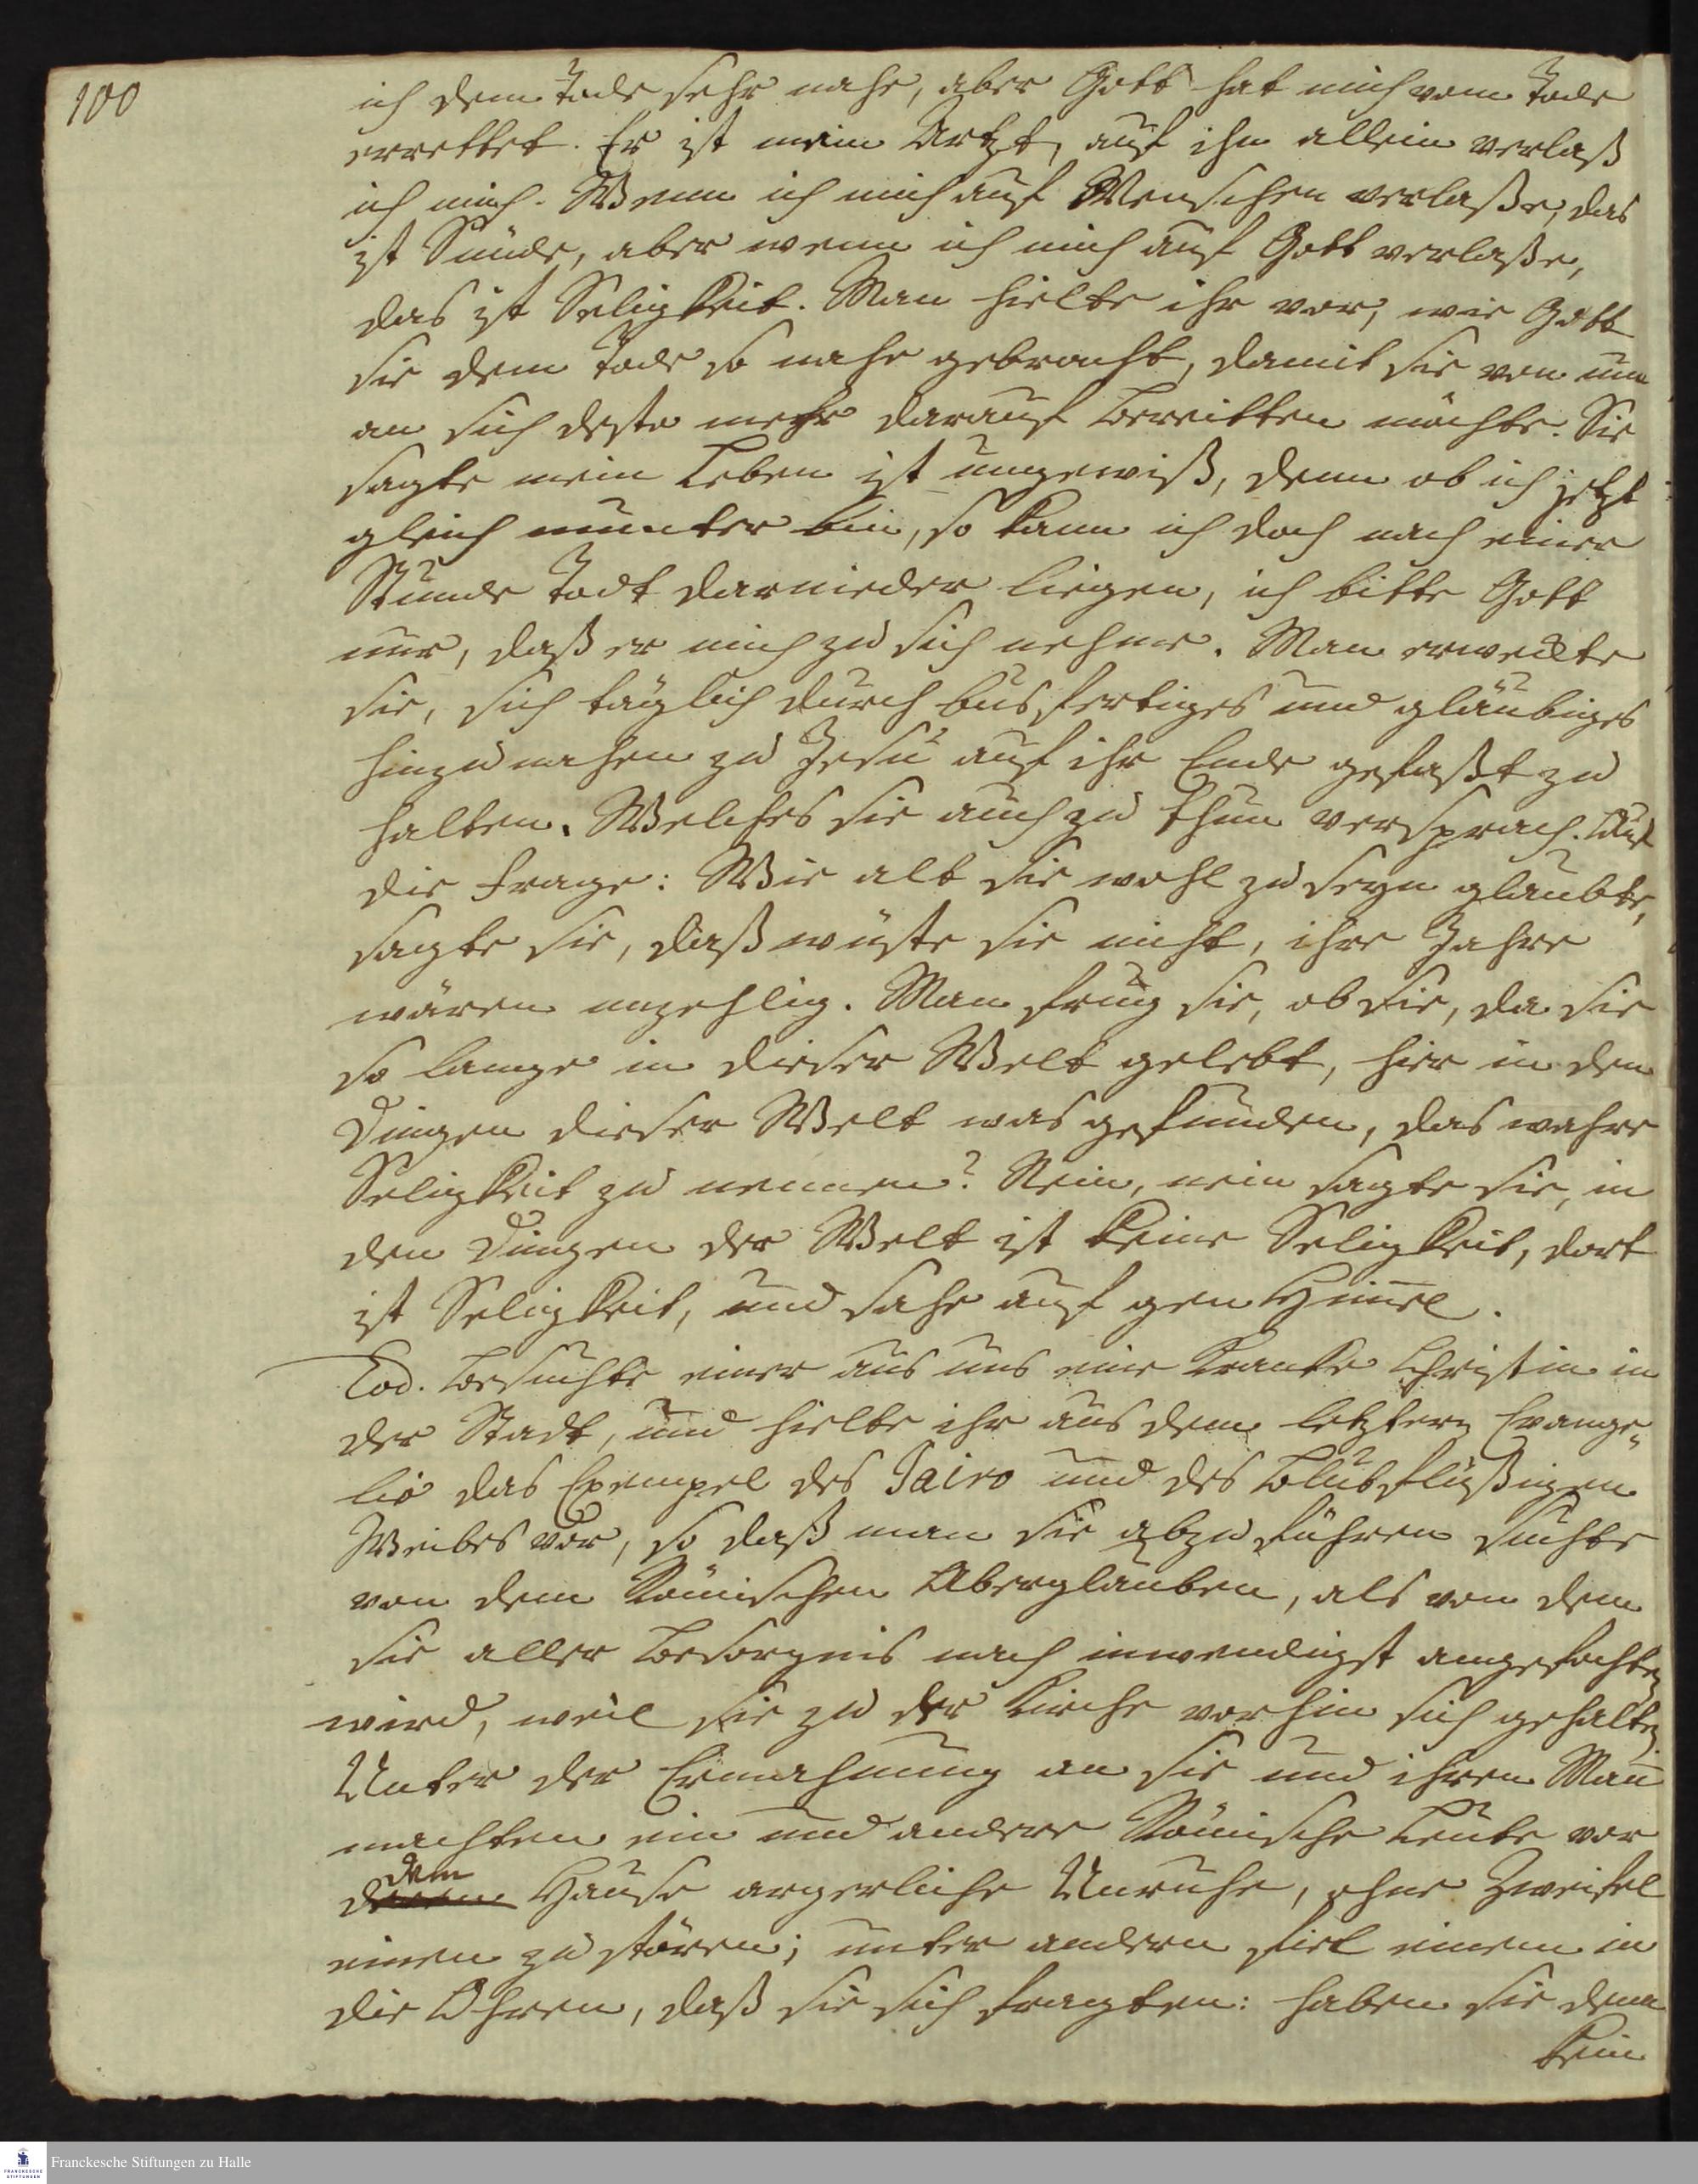 100
ich dem Tode sehr nahe, aber Gott hat mich vom Tode
errettet. Er ist mein Artzt, auf ihn allein verlaß
ich mich. Wenn ich mich auf Menschen verlaße, das
ist Sünde, aber wenn ich mich auf Gott verlaße,
das ist Seligkeit. Man hielte ihr vor, wie Gott
sie dem Tode so nahe gebracht, damit sie von nun
an sich desto mehr darauf bereitten möchte. Sie
sagte mein Leben ist ungewiß, denn ob ich jetzt
gleich munter bin, so kann ich doch nach einer
Stunde Todt darnieder liegen, ich bitte Gott
nur, daß er mich zu sich nehme. Man erweckte
sie, sich täglich durch busfertiges und gläubiges
hinzunahen zu Jesu auf ihr Ende gefaßt zu
halten. Welches sie auch zu thun versprach. Auf
die Frage: Wie alt sie wohl zu seyn glaubte,
sagte sie, daß wüste sie nicht, ihre Jahre
wären unzehlig. Man frug sie, ob sie, da sie
so lange in dieser Welt gelebt, hier in den
Dingen dieser Welt was gefunden, das wahre
Seligkeit zu nennen? Nein, nein sagte sie, in
den Dingen der Welt ist keine Seligkeit, dort
ist Seligkeit, und sahe auf gen Him̅el.
Eod. besuchte einer aus uns eine kranke Christin in
der Stadt, und hielte ihr aus dem letztern Evange„
lio das Exempel des Jairo und des Blutflüßigen
Weibes vor, so daß man sie abzuführen suchte
von dem Römischen Aberglauben, als von dem
sie aller Besorgnis nach inwendigst angefochten
wird, weil sie zu der Kirche vorhin sich gehalten.
Unter der Ermahnung an sie und ihren Man̅
machten ein und andere Römische Leute vor
dem
Hause argerliche Unruhe, ohne Zweifel
einen zu stören; unter andern fiel einem in
die Ohren, daß sie sich fragten: haben sie denn
kein
Franckesche Stiftungen zu Halle
FRANCKESCHE
STIFTUNGEN